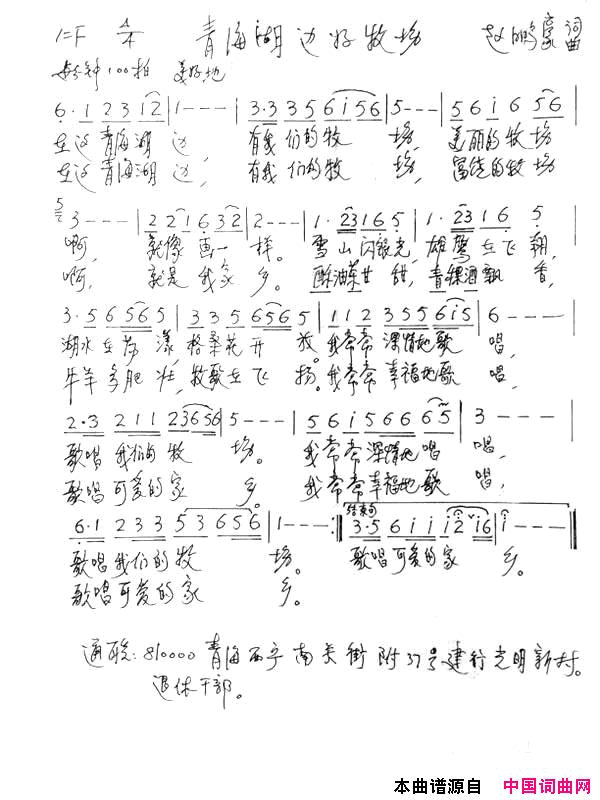 1=F 4/4 青海湖边好牧场 赵鹏豪 词曲
每分钟100拍 美好地
6·1 2 3 1 2 | 1 - - - | 3·3 3 5 6 i 5 6 | 5 - - - | 5 6 i 6 5 6 |
在这青海湖 边, 有我们的牧 场, 美丽的牧场
在这青海湖 边, 有我们的牧 场, 富饶的牧场
3 - - - | 2 2 1 6 3 2 | 2 - - - | 1· 2 3 1 6 5 | 1· 2 3 1 6 5 |
啊, 就像画一 样。 雪山闪银光, 雄鹰在飞翔,
啊, 就是我家 乡。 酥油茶甘甜, 青稞酒飘香,
3·5 6 5 6 5 | 3 3 5 6 5 6 5 | 1 1 2 3 5 5 6 i 5 | 6 - - - |
湖水在荡漾, 格桑花开放。我常常深情地歌 唱,
牛羊多肥壮, 牧歌在飞扬。我常常幸福地歌 唱,
2·3 2 1 1 2 3 6 5 6 | 5 - - - | 5 6 i 5 6 6 6 5 | 3 - - - |
歌唱我们的牧 场。 我常常深情地唱 唱,
歌唱可爱的家 乡。 我常常幸福地歌 唱,
结束句
6·1 2 3 3 5 3 6 5 6 | 1 - - - :‖ 3·5 6 i i i 2 i 6 | i - - - ‖
歌唱我们的牧 场。 歌唱可爱的家 乡。
歌唱可爱的家 乡。
通联: 810000 青海西宁南关街附37号建行光明新村。
退休干部。
本曲谱源自 中国词曲网